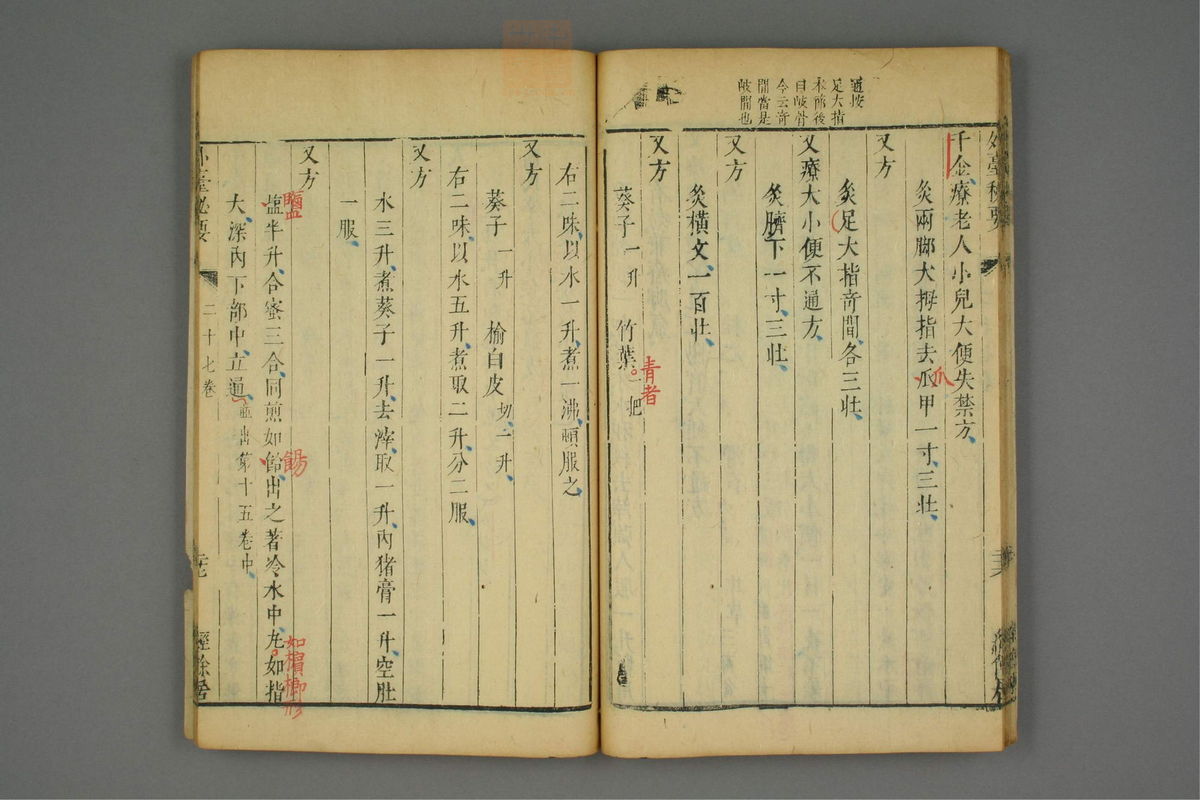 外臺秘要
通按
足大指
本節後
曰岐骨
今云奇
間當是
岐間也
千金療老人小兒大便失禁方
灸兩脚大拇指去瓜甲一寸三壯
爪
又方
灸足大指奇間各三壯
又療大小便不通方
灸臍下一寸三壯
又方
灸橫文一百壯
又方
葵子一升 竹葉一把
青者
右二味以水一升煮一沸頓服之
又方
葵子一升 榆白皮切一升
右二味以水五升煮取二升分二服
又方
水三升煮葵子一升去滓取一升內猪膏一升空肚
一服
又方
塩半升合蜜三合同煎如飴出之著冷水中丸如指
鹽
餳
如檳榔形
大深內下部中立通並出第十五卷中
外臺秘要
二十七卷
二十七
經餘居